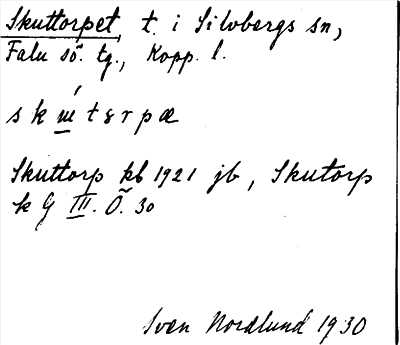 Skuttorpet t. i Silvbergs sn,
Falu sö. tg., Kopp. l.
skɯ́tɛrpæ
Skuttorp kb 1921 jb, Skutorp
k G III. Ö. 30
Sven Nordlund 1930